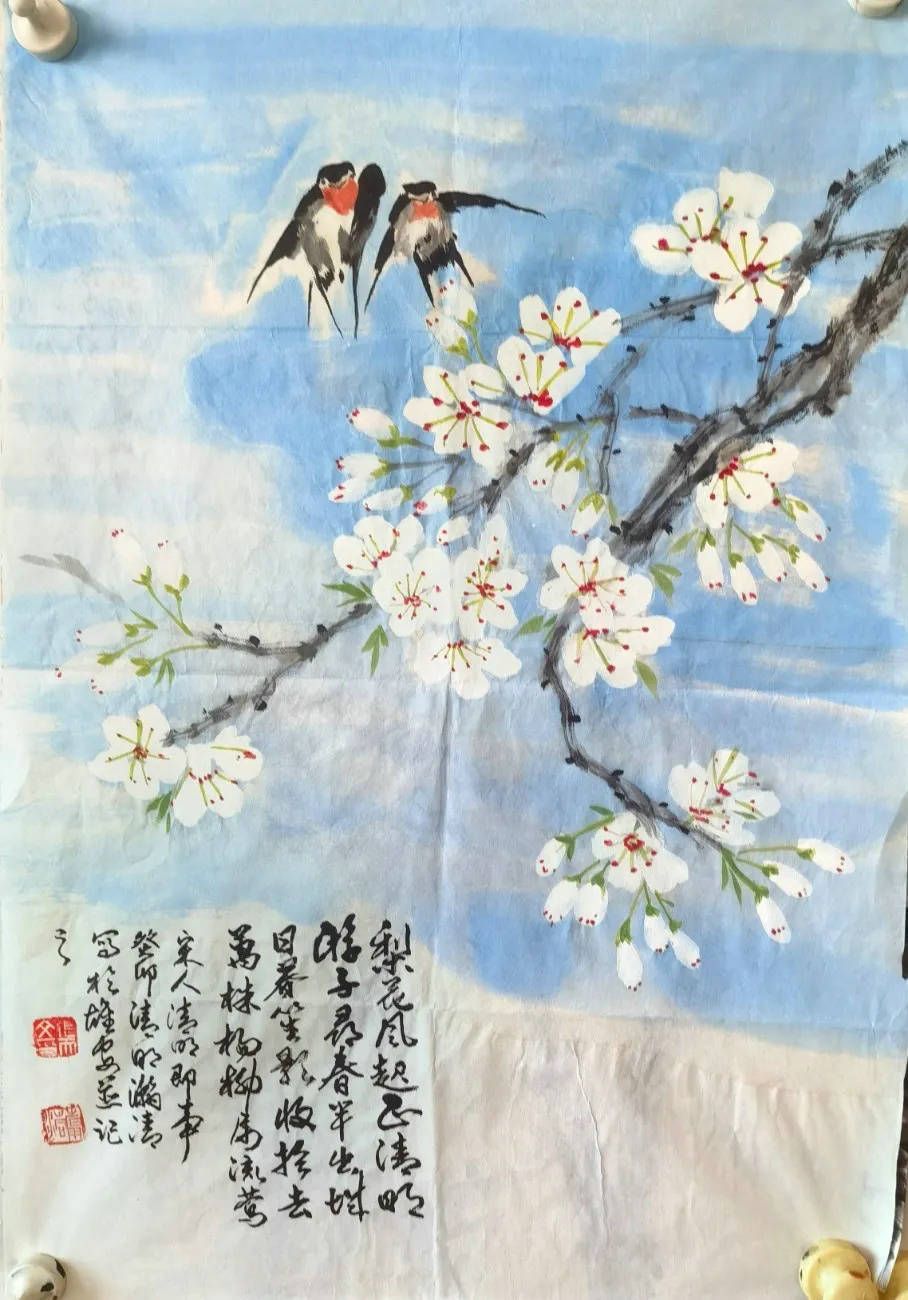 梨花风起正清明
游子寻春半出城
日暮笙歌收拾去
萬株杨柳属流莺
宋人清明即事
癸卯清明瀚清
写於雄安並记
之